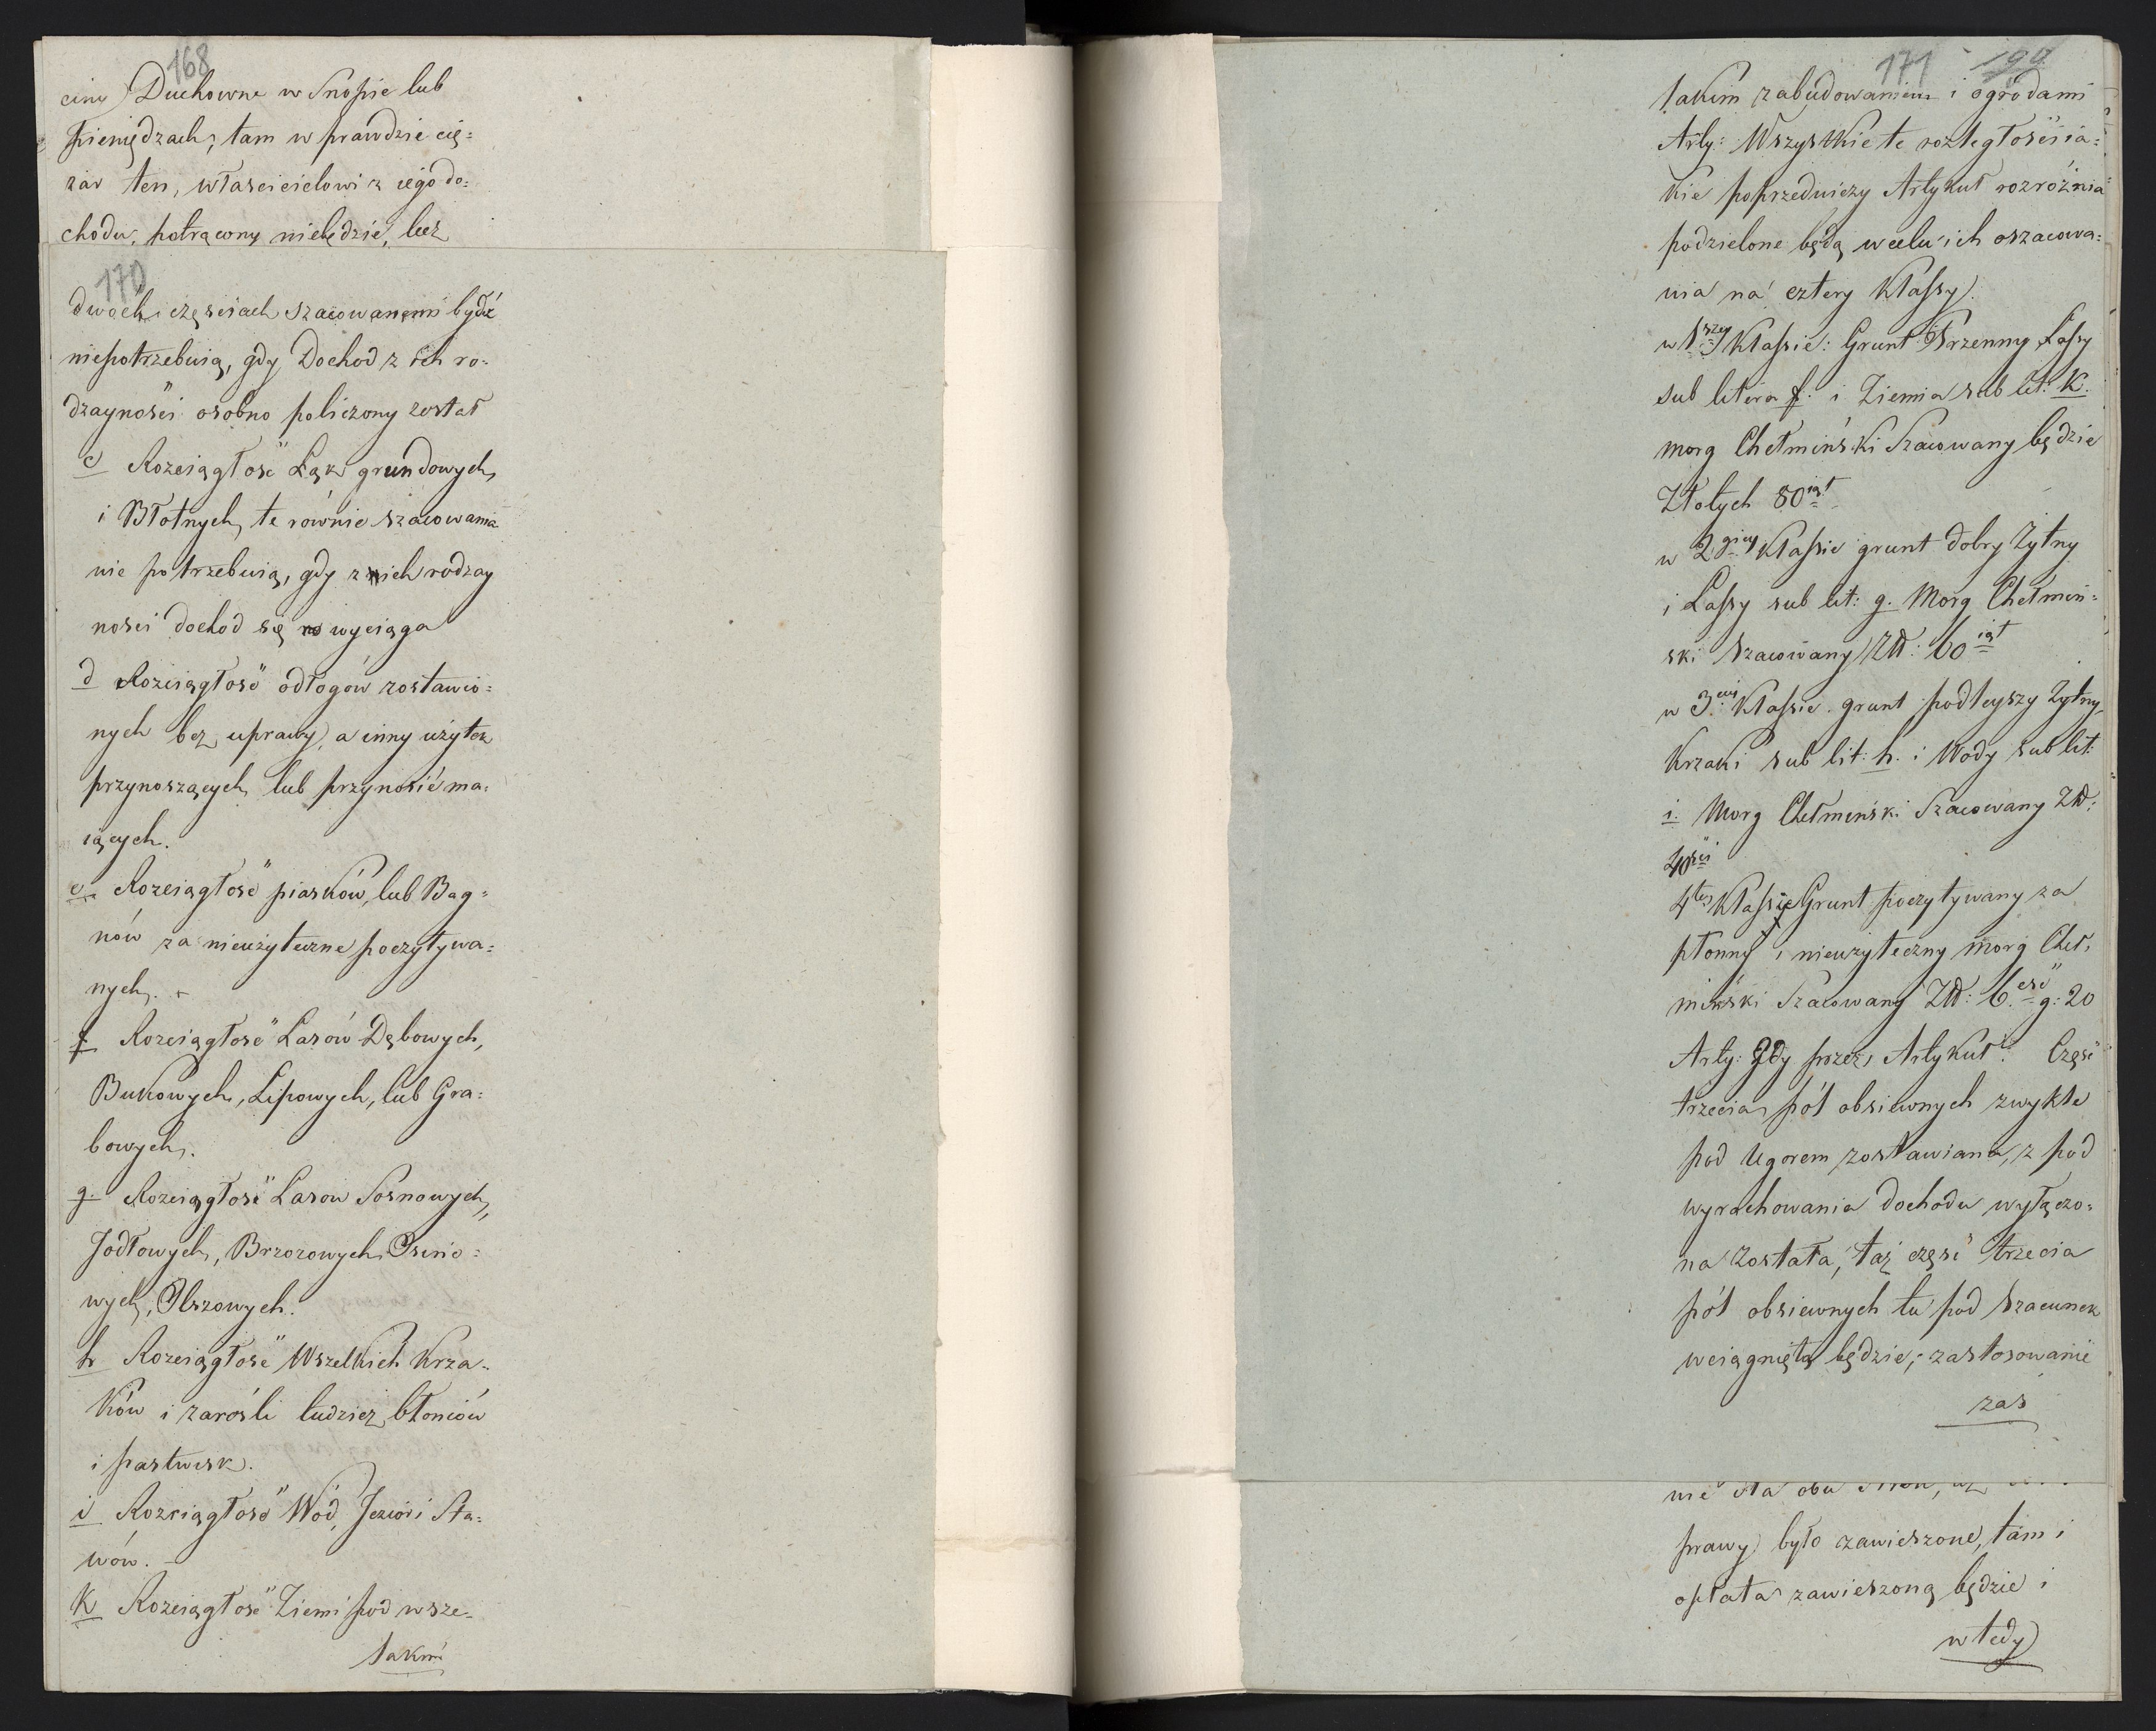 168
ciny Duchowne w Snopie lub
pieniędzach, tam w prawdzie cię=
żar ten, własicielowi z iego do=
chodu, potrącony niebędzie, lecz
170
dwoch częściach szacowanemi bydź
niepotrzebuią, gdy Dochod z ich ro=
dzayności osobno policzony został
c Rozciągłość Łąk grundowych
i Błotnych, te równie szacowania
nie potrzebuią, gdy z nich rodzay
ności dochod się wyciąga
d Rozciągłość odłogów zostawio=
nych bez uprawy, a inny użytek
przynoszących lub przynosić ma=
iących.
e. Rozciągłość piasków, lub Bag=
nów za nieużyteczne poczytywa=
nych.
f Rozciągłość Lasów Dębowych,
Bukowych, Lipowych, lub Gra=
bowych.
g. Rozciągłość Lasow Sosnowych,
Jodłowych, Brzozowych Osino=
wych, Olszowych.
h Rozciągłość Wszelkich Krza=
ków i zarośli tudzież błoniów
i pastwisk.
i Rozciągłość Wód, Jezior i Sta=
wów. -
k Rozciągłość Ziemi pod wsze=
lakim
171 190
lakim zabudowaniem i ogrodami
Arty: Wszystkie te rozległości ia=
kie poprzedniczy Artykuł rozróżnia
podzielone będą w celu ich oszacowa=
nia na cztery Klassy.
w 1szey Klassie: Grunt Przenny Lassy
sub litera f. i Ziemia sub lit: K.
morg Chełmiński Szacowany będzie
Złotych 80iąt
w 2giey Klassie grunt dobry Żytny
i Lassy sub lit: g. Morg Chełmiń=
ski Szacowany Zł: 60iąt
w 3ciey Klassie grunt podleyszy Żytny,
Krzaki sub lit: h. i Wody sub lit:
i. Morg Chełmiński Szacowany Zł:
40ści
4tey Klassie Grunt poczytywany za
płonny i nieużyteczny morg Cheł=
miński Szacowany Zł: 6.eść g: 20
Arty: Gdy przez Artykuł: Część
trzecia pół obsiewnych zwykle
pod Ugorem zostawiana, z pod
wyrachowania dochodu wyłączo=
na została, taż część trzecia
pół obsiewnych tu pod Szacunek
wciągnięta będzie; zastosowanie
zaś
prawy było zawieszone, tam i
opłata zawieszoną będzie i
wtedy